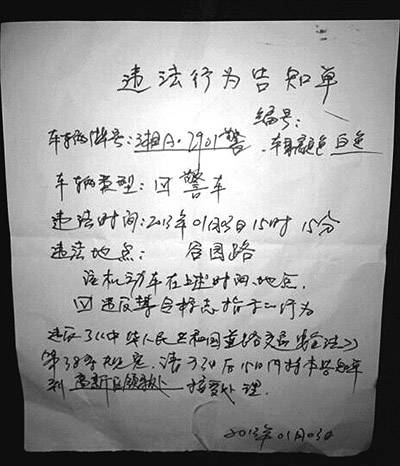 违法行为告知单
编号:
车辆牌号:湘A·2901警 车身颜色 白色
车辆类型:☑警车
违法时间:2013年01月03日15时15分
违法地点: 谷园路
该机动车在上述时间、地点,
☑违反禁令标志指示的行为
违反了《中华人民共和国道路交通安全法》
第38条规定,请于3日后15日内持本告知单
到 高新区领秀处 接受处理.
2013年01月03日